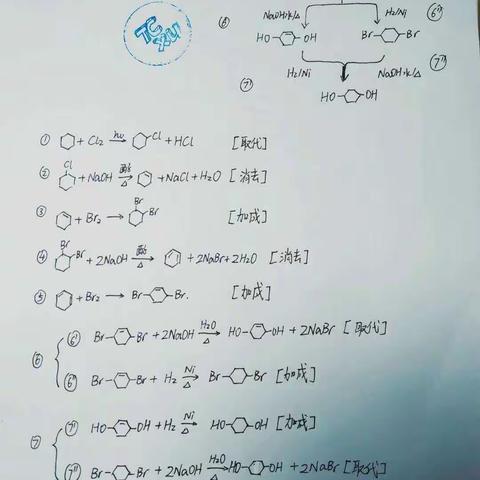 TC XU
⑥ NaOH水/△ H₂/Ni ⑥''
HO OH Br Br
⑦' H₂/Ni NaOH水/△ ⑦''
HO OH
① + Cl₂ hν→ Cl + HCl [取代]
② Cl + NaOH 醇/△→ + NaCl + H₂O [消去]
③ + Br₂ → Br Br [加成]
④ Br Br + 2NaOH 醇/△→ + 2NaBr + 2H₂O [消去]
⑤ + Br₂ → Br Br. [加成]
⑥ { ⑥' Br Br + 2NaOH H₂O/△→ HO OH + 2NaBr [取代]
⑥'' Br Br + H₂ Ni/△→ Br Br [加成]
⑦ { ⑦' HO OH + H₂ Ni/△→ HO OH [加成]
⑦'' Br Br + 2NaOH H₂O/△→ HO OH + 2NaBr [取代]